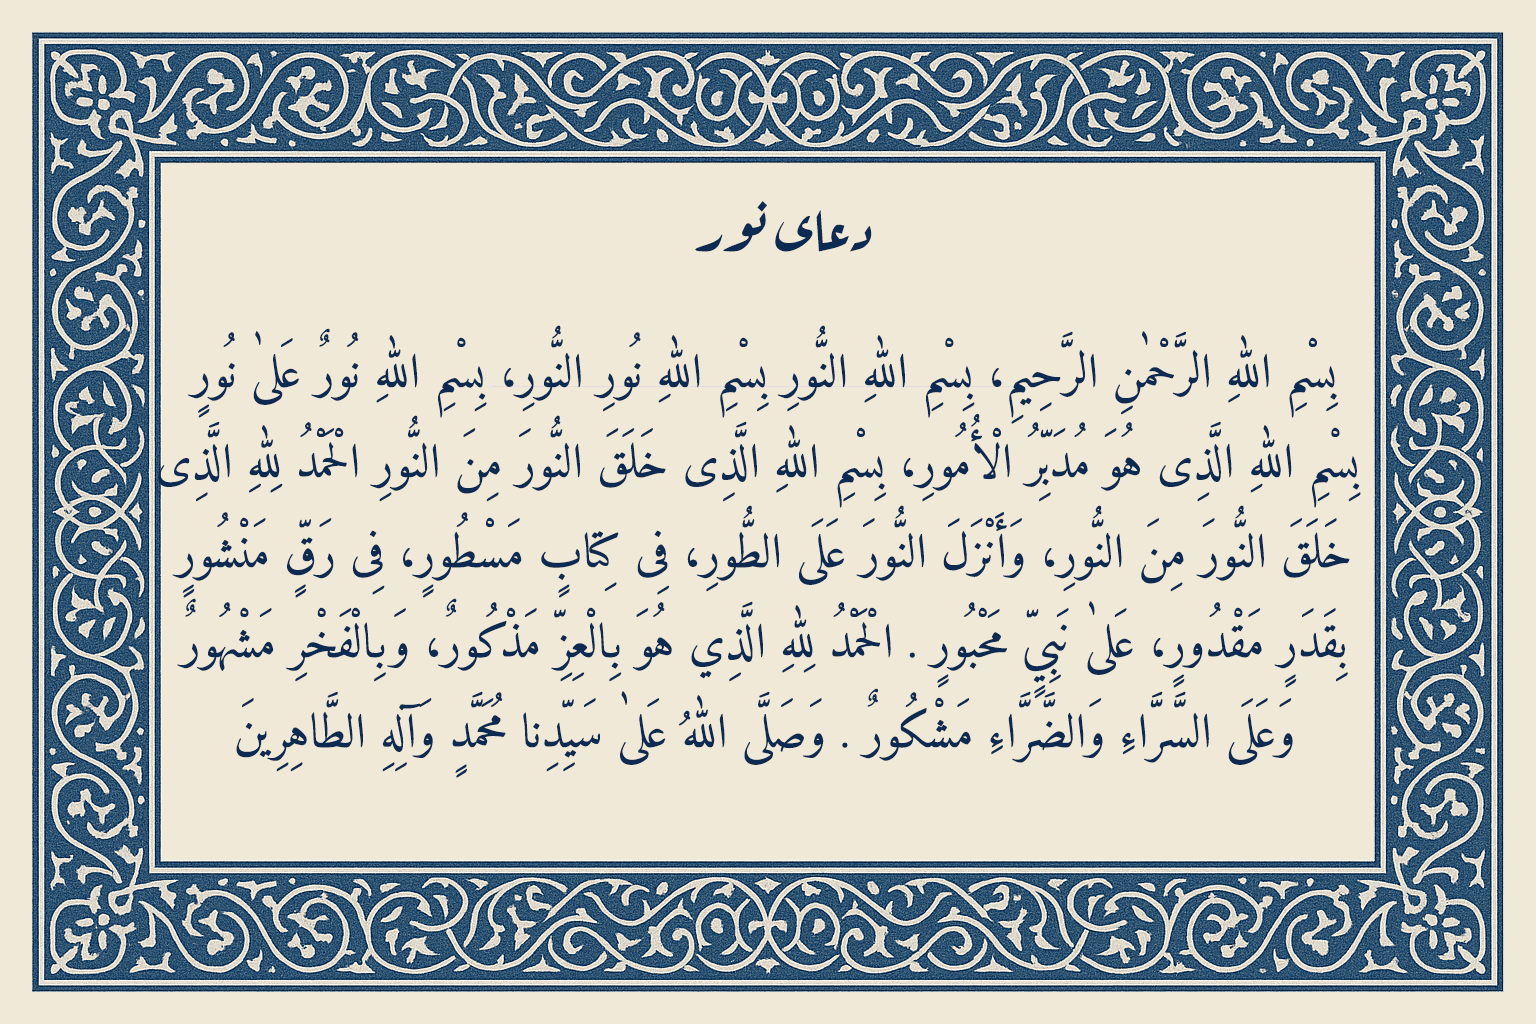 دعای نور
بِسْمِ اللهِ الرَّحْمٰنِ الرَّحِيمِ، بِسْمِ اللهِ النُّورِ بِسْمِ اللهِ نُورِ النُّورِ، بِسْمِ اللهِ نُورٌ عَلىٰ نُورٍ
بِسْمِ اللهِ الَّذِی هُوَ مُدَبِّرُ الْأُمُورِ، بِسْمِ اللهِ الَّذِی خَلَقَ النُّورَ مِنَ النُّورِ الْحَمْدُ لِلهِ الَّذِی
خَلَقَ النُّورَ مِنَ النُّورِ، وَأَنْزَلَ النُّورَ عَلَى الطُّورِ، فِی كِتابٍ مَسْطُورٍ، فِی رَقٍّ مَنْشُورٍ
بِقَدَرٍ مَقْدُورٍ، عَلىٰ نَبِيٍّ مَحْبُورٍ . الْحَمْدُ لِلهِ الَّذِي هُوَ بِالْعِزِّ مَذْكُورٌ، وَبِالْفَخْرِ مَشْهُورٌ
وَعَلَى السَّرَّاءِ وَالضَّرَّاءِ مَشْكُورٌ . وَصَلَّى اللهُ عَلىٰ سَيِّدِنا مُحَمَّدٍ وَآلِهِ الطَّاهِرِينَ